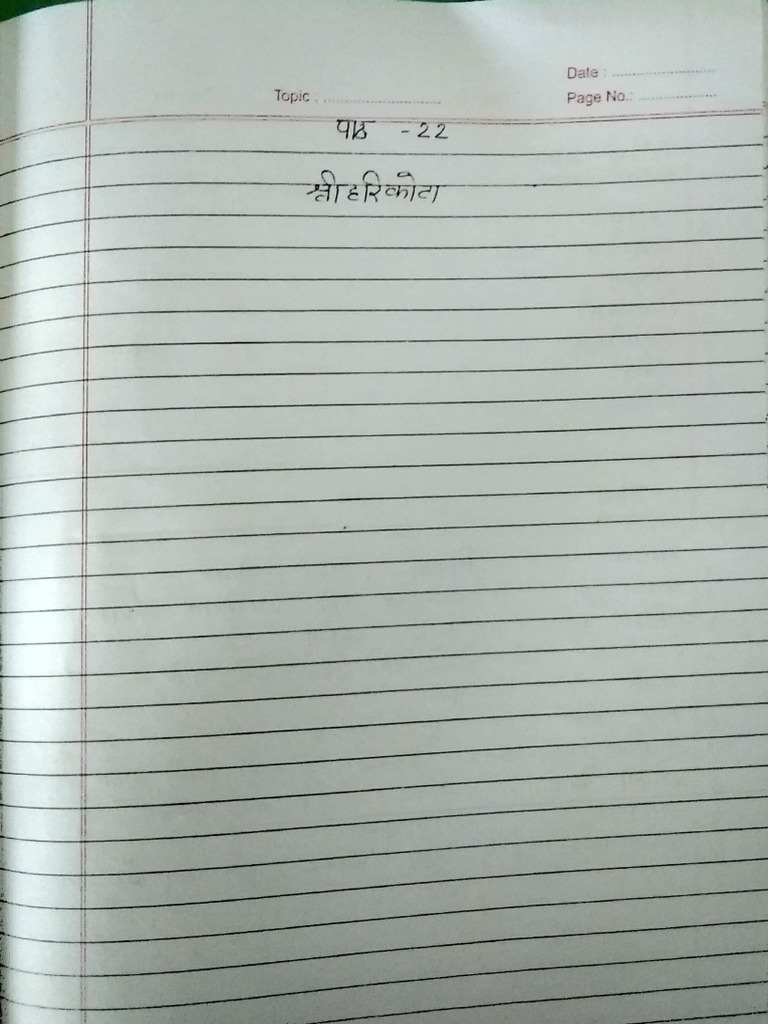 Date : ........................
Topic : ............................
Page No.: ....................
पाठ - 22
श्रीहरिकोटा